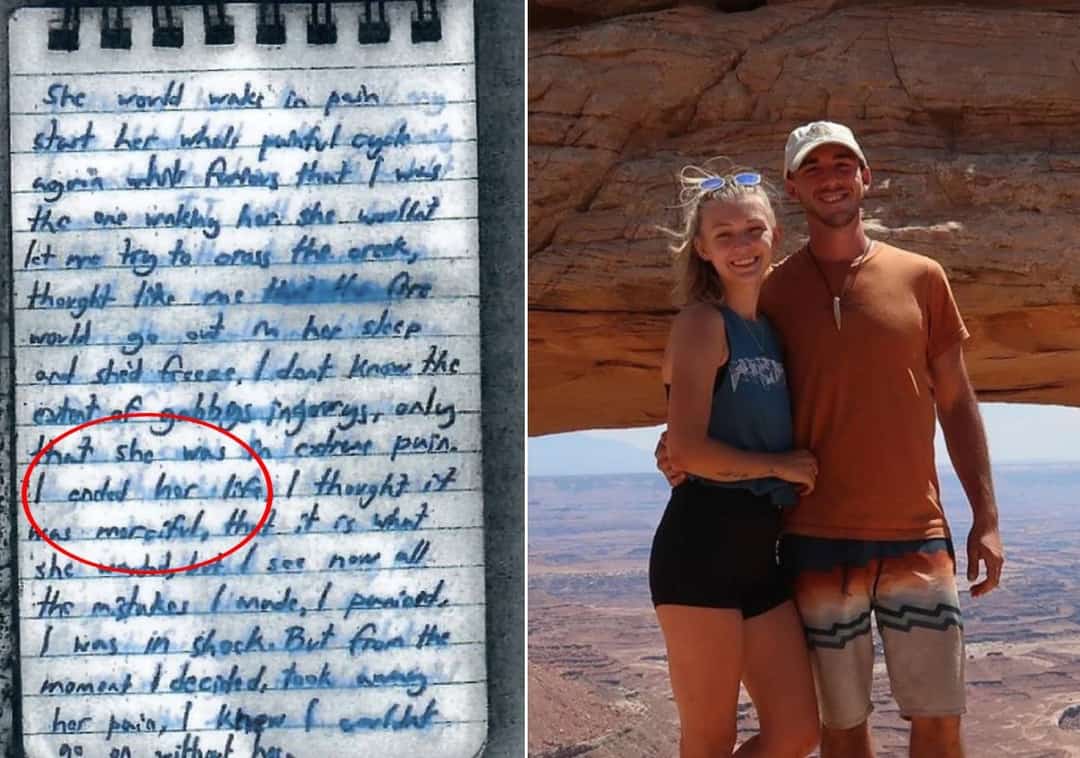 She would wake in pain
start her whole painful cycle
again while furious that I was
the one waking her. she wouldnt
let me try to cross the creek,
thought like me the fire
would go out in her sleep
and she'd freeze. I dont know the
extent of gabbys ingurys, only
that she was in extreme pain.
I ended her life. I thought it
was merciful, that it is what
she wanted, but I see now all
the mistakes I made. I paniced.
I was in shock. But from the
moment I decided, took away
her pain, I knew I wouldnt
go on without her.